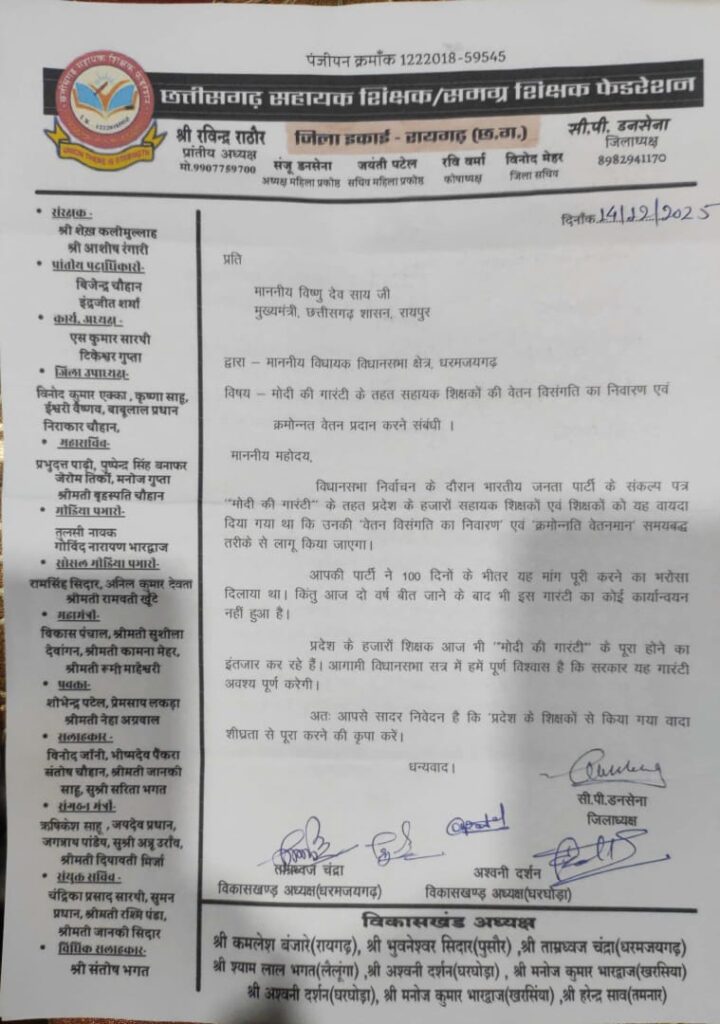 पंजीयन क्रमाँक 1222018-59545
छत्तीसगढ़ सहायक शिक्षक/समग्र शिक्षक फेडरेशन
जिला इकाई - रायगढ़ (छ.ग.)
श्री रविन्द्र राठौर
प्रांतीय अध्यक्ष
मो.9907759700
संजू डनसेना
अध्यक्ष महिला प्रकोष्ठ
जयंती पटेल
सचिव महिला प्रकोष्ठ
रवि वर्मा
कोषाध्यक्ष
विनोद मेहर
जिला सचिव
सी.पी. डनसेना
जिलाध्यक्ष
8982941170
UNION THERE IS STRENGTH
• संरक्षक -
श्री शेख कलीमुल्लाह
श्री आशीष रंगारी
• प्रांतीय पदाधिकारी-
बिजेन्द्र चौहान
इंद्रजीत शर्मा
• कार्य. अध्यक्ष -
एस कुमार सारथी
टिकेश्वर गुप्ता
• जिला उपाध्यक्ष-
विनोद कुमार एक्का , कृष्णा साहू,
ईश्वरी वैष्णव, बाबूलाल प्रधान
निराकार चौहान,
• महासचिव-
प्रभुदत्त पाढ़ी, पुष्पेन्द्र सिंह बनाफर
जेरोम तिर्की, मनोज गुप्ता
श्रीमती बृहस्पति चौहान
• मीडिया प्रभारी-
तुलसी नायक
गोविंद नारायण भारद्वाज
• सोसल मीडिया प्रभारी-
रामसिंह सिदार, अनिल कुमार देवता
श्रीमती रामवती खुँटे
• महामंत्री-
विकास पंचाल, श्रीमती सुशीला
देवांगन, श्रीमती कामना मेहर,
श्रीमती रूमी माहेश्वरी
• प्रवक्ता-
शोभेन्द्र पटेल, प्रेमसाय लकड़ा
श्रीमती नेहा अग्रवाल
• सलाहकार-
विनोद जॉनी, भीष्मदेव पैंकरा
संतोष चौहान, श्रीमती जानकी
साहू, सुश्री सरिता भगत
• संगठन मंत्री-
ऋषिकेश साहू , जयदेव प्रधान,
जगन्नाथ पांडेय, सुश्री अन्नू उराँव,
श्रीमती दियावती मिर्जा
• संयुक्त सचिव -
चंद्रिका प्रसाद सारथी, सुमन
प्रधान, श्रीमती रश्मि पंडा,
श्रीमती जानकी सिदार
• विधिक सलाहकार-
श्री संतोष भगत
दिनाँक 14/12/2025
प्रति
माननीय विष्णु देव साय जी
मुख्यमंत्री, छत्तीसगढ़ शासन, रायपुर
द्वारा – माननीय विधायक विधानसभा क्षेत्र, धरमजयगढ़
विषय – मोदी की गारंटी के तहत सहायक शिक्षकों की वेतन विसंगति का निवारण एवं
क्रमोन्नत वेतन प्रदान करने संबंधी ।
माननीय महोदय,
विधानसभा निर्वाचन के दौरान भारतीय जनता पार्टी के संकल्प पत्र
"मोदी की गारंटी" के तहत प्रदेश के हजारों सहायक शिक्षकों एवं शिक्षकों को यह वायदा
दिया गया था कि उनकी 'वेतन विसंगति का निवारण' एवं 'क्रमोन्नति वेतनमान' समयबद्ध
तरीके से लागू किया जाएगा।
आपकी पार्टी ने 100 दिनों के भीतर यह मांग पूरी करने का भरोसा
दिलाया था। किंतु आज दो वर्ष बीत जाने के बाद भी इस गारंटी का कोई कार्यान्वयन
नहीं हुआ है।
प्रदेश के हजारों शिक्षक आज भी "मोदी की गारंटी" के पूरा होने का
इंतजार कर रहे हैं। आगामी विधानसभा सत्र में हमें पूर्ण विश्वास है कि सरकार यह गारंटी
अवश्य पूर्ण करेगी।
अतः आपसे सादर निवेदन है कि 'प्रदेश के शिक्षकों से किया गया वादा
शीघ्रता से पूरा करने की कृपा करें।
धन्यवाद।
सी.पी.डनसेना
जिलाध्यक्ष
ताम्रध्वज चंद्रा
विकासखण्ड अध्यक्ष(धरमजयगढ़)
अश्वनी दर्शन
विकासखण्ड अध्यक्ष(घरघोड़ा)
विकासखंड अध्यक्ष
श्री कमलेश बंजारे(रायगढ़), श्री भुवनेश्वर सिदार(पुसौर) ,श्री ताम्रध्वज चंद्रा(धरमजयगढ़)
श्री श्याम लाल भगत(लैलूंगा) ,श्री अश्वनी दर्शन(घरघोड़ा) , श्री मनोज कुमार भारद्वाज(खरसिया)
श्री अश्वनी दर्शन(घरघोड़ा), श्री मनोज कुमार भारद्वाज(खरसिंया) ,श्री हरेन्द्र साव(तमनार)